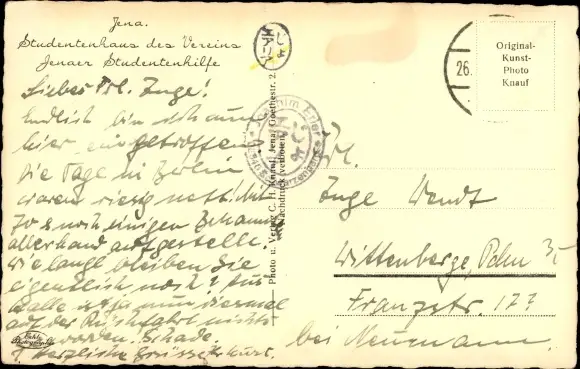 Jena.
Studentenhaus des Vereins
Jenaer Studentenhilfe
Liebes Frl. Inge!
Endlich bin ich nun
hier eingetroffen
die Tage in Berlin
waren riesig nett. Mit
noch einigen Bekannten
allerhand aufgestellt.
Wie lange bleiben Sie
eigentlich noch? Aus
Halle ist ja nun diesmal
auf der Rückfahrt nichts
geworden. Schade.
Herzliche Grüsse Kurt.
Photo u. Verlag C. H. Knauf, Jena, Goethestr. 2.
Nachdruck verboten
26.
Original-
Kunst-
Photo
Knauf
Frl.
Inge Wendt
Wittenberge,
Franzstr. 17
bei Neumann.